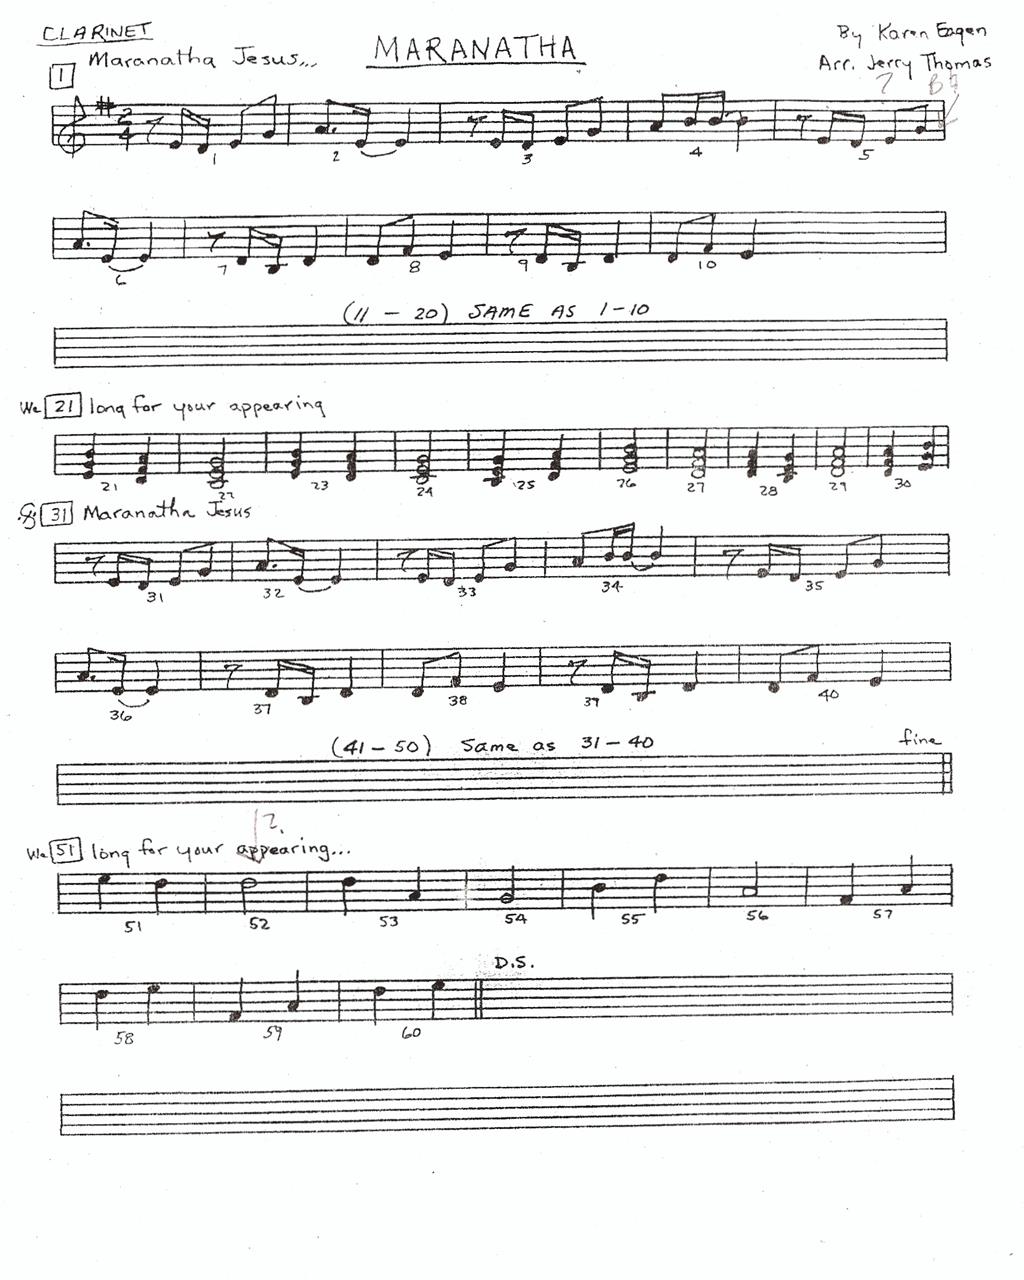 CLARINET
MARANATHA
By Karen Eagen
Arr. Jerry Thomas
1 Maranatha Jesus...
? B
2 4
1 2 3 4 5
6 7 8 9 10
(11 - 20) SAME AS 1-10
We 21 long for your appearing
21 22 23 24 25 26 27 28 29 30
31 Maranatha Jesus
31 32 33 34 35
36 37 38 39 40
(41 - 50) Same as 31 - 40 fine
?
We 51 long for your appearing...
51 52 53 54 55 56 57
D.S.
58 59 60